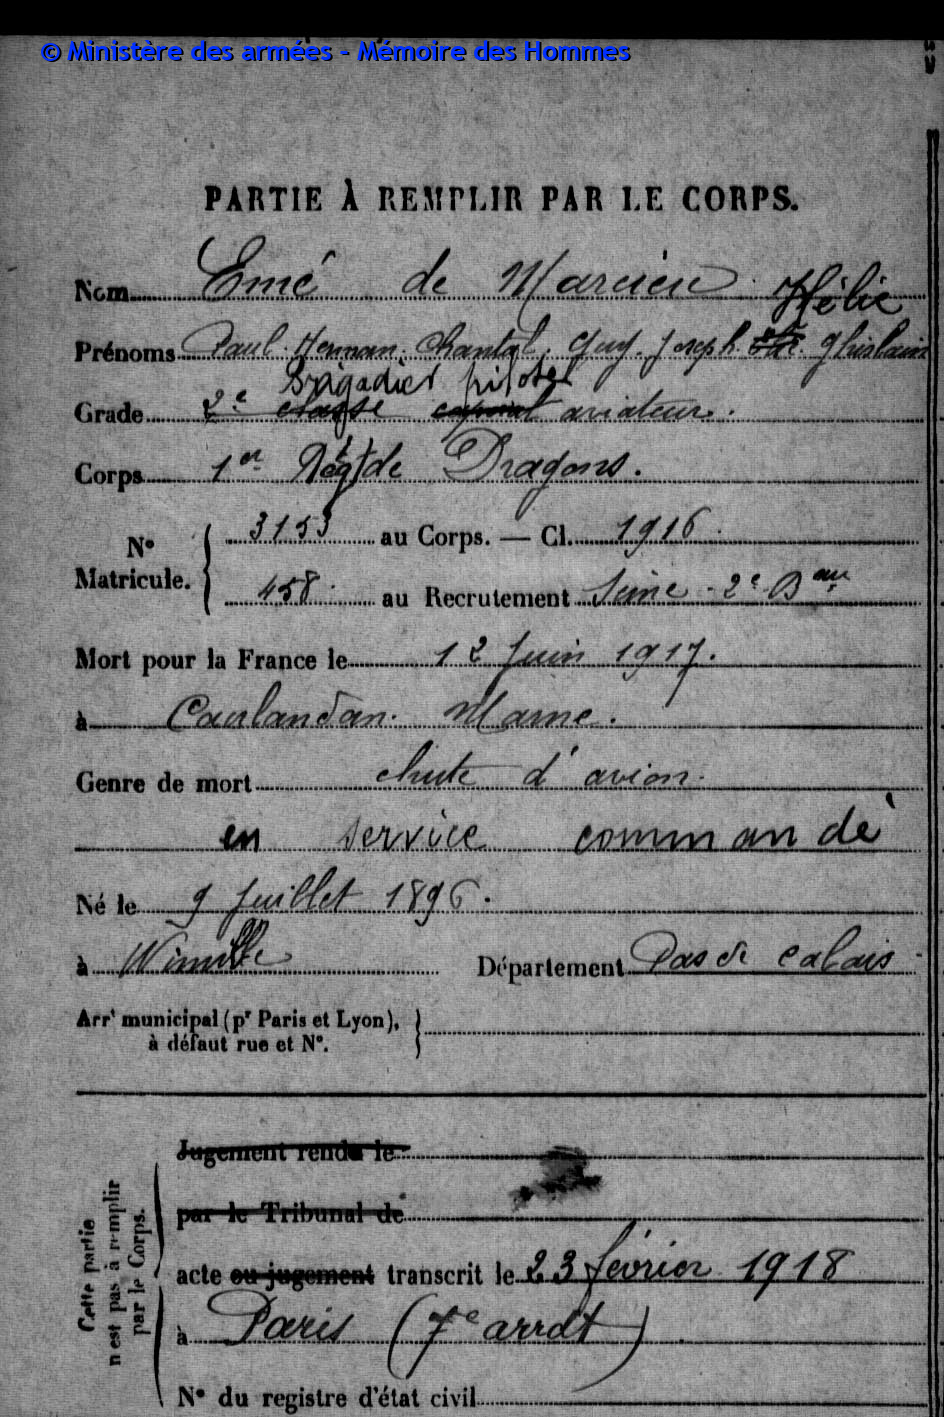 © Ministère des armées - Mémoire des Hommes
PARTIE À REMPLIR PAR LE CORPS.
Nom Emé de Marcieu
Hélie
Prénoms Paul Hennan Chantal, Guy, Joseph Ghislain
Brigadier pilote
Grade 2e classe caporal aviateur.
Corps 1er Régt de Dragons.
3153 au Corps. — Cl. 1916
N°
Matricule.
458 au Recrutement Seine 2e Bau
Mort pour la France le 12 Juin 1917.
à Caurlandan. Marne.
Genre de mort chute d'avion.
en service commandé
Né le 9 Juillet 1896.
à Wimille Département Pas de Calais
Arrt municipal (pr Paris et Lyon),
à défaut rue et N°.
Jugement rendu le
par le Tribunal de
acte ou jugement transcrit le 23 février 1918
à Paris (7e arrdt)
N° du registre d'état civil
Cette partie
n'est pas à remplir
par le Corps.